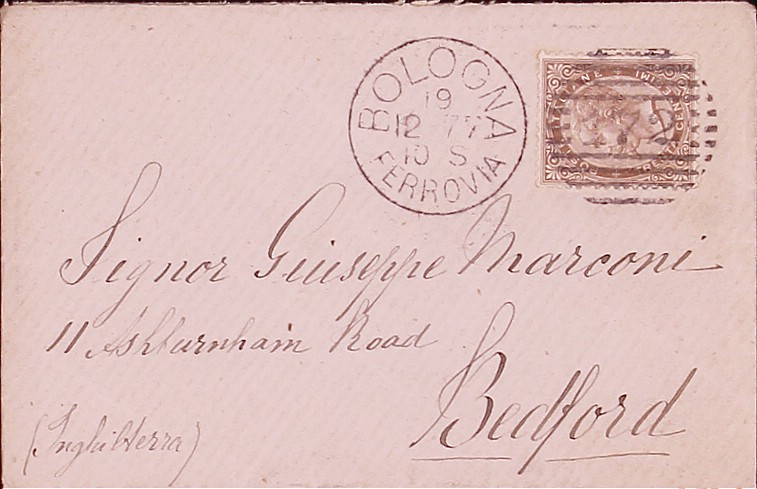 BOLOGNA
19
12 77
10 S
FERROVIA
POSTE ITALIANE
TRENTA CENTESIMI
72
Signor Giuseppe Marconi
11 Ashburnham Road
Bedford
(Inghilterra)